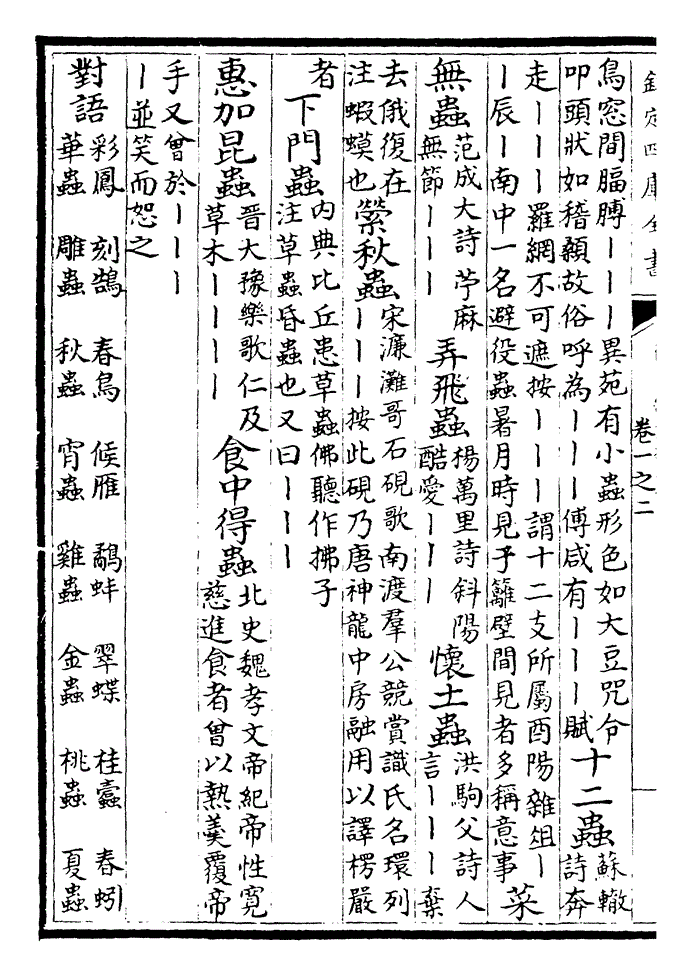 欽定四庫全書
卷一之二
鳥窓間腷膊｜｜｜異苑有小蟲形色如大豆咒令
叩頭狀如稽顙故俗呼為｜｜｜傅咸有｜｜｜賦
十二蟲
蘇轍
詩奔
走｜｜｜｜羅網不可遮按｜｜｜｜謂十二支所屬酉陽雜俎｜
｜辰｜｜南中一名避役蟲暑月時見于籬壁間見者多稱意事
菜
無蟲
范成大詩苧麻
無節｜｜｜
弄飛蟲
楊萬里詩斜陽
酷愛｜｜｜
懷土蟲
洪駒父詩人
言｜｜｜棄
去俄復在
注蝦蟆也
縈秋蟲
宋濂灘哥石硯歌南渡羣公競賞識氏名環列
｜｜｜按此硯乃唐神龍中房融用以譯楞嚴
者
下門蟲
內典比丘患草蟲佛聽作拂子
注草蟲昏蟲也又曰｜｜｜
惠加昆蟲
晉大豫樂歌仁及
草木｜｜｜｜
食中得蟲
北史魏孝文帝紀帝性寬
慈進食者曾以熱羹覆帝
手又曾於｜｜｜
｜並笑而恕之
對語
彩鳳
華蟲
刻鵠
雕蟲
春鳥
秋蟲
候雁
宵蟲
鷸蚌
雞蟲
翠蝶
金蟲
桂蠹
桃蟲
春蚓
夏蟲